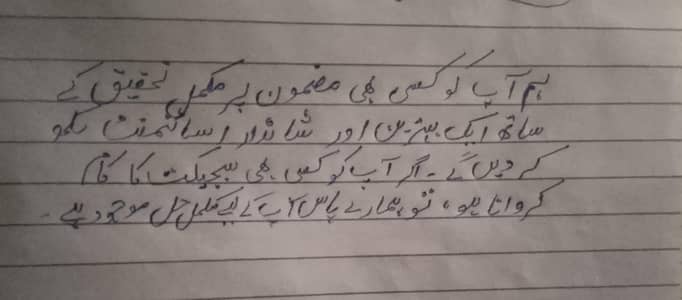 ہم آپ کو کسی بھی مضمون پر مکمل تحقیق کے
ساتھ ایک بہترین اور شاندار اسائنمنٹ لکھ
کر دیں گے۔ اگر آپ کو کسی بھی سبجیکٹ کا کام
کروانا ہو، تو ہمارے پاس آپ کے لیے مکمل حل موجود ہے۔